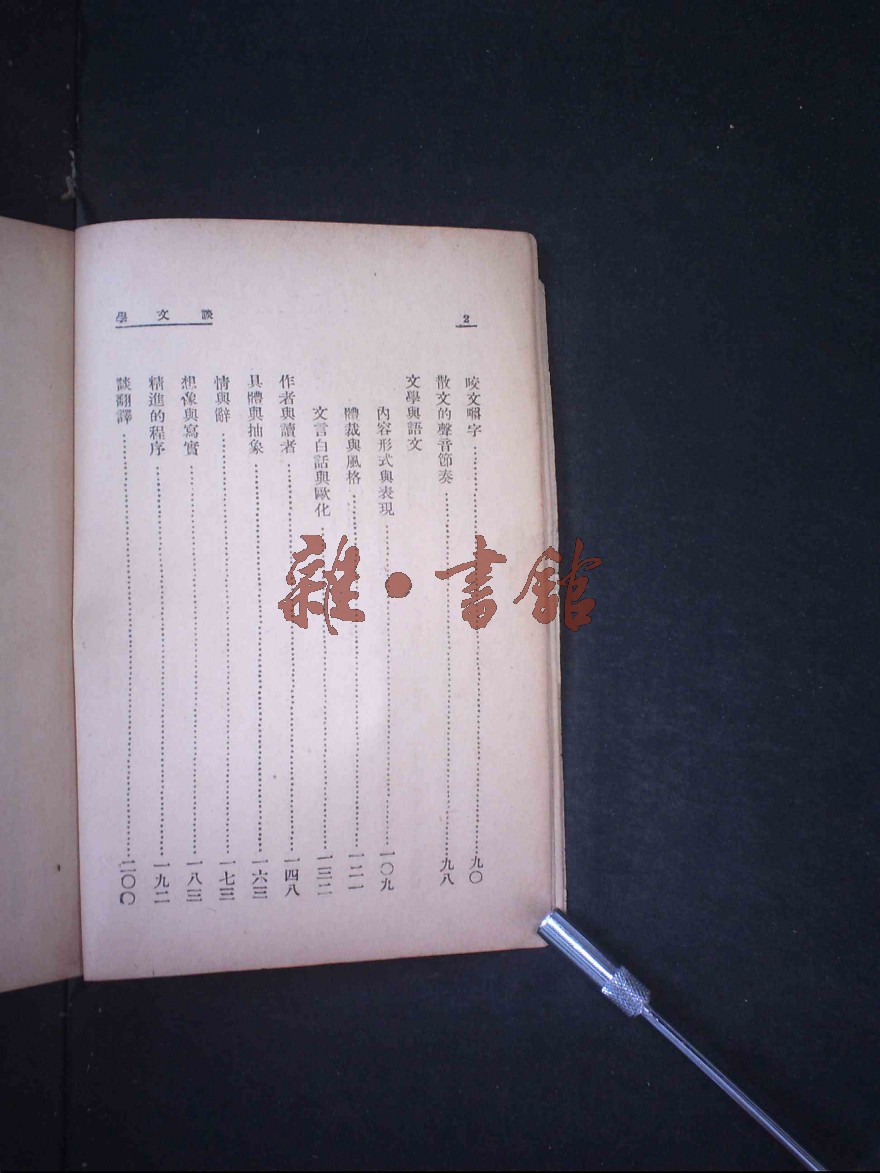 2
談文學
咬文嚼字……九〇
散文的聲音節奏……九八
文學與語文
內容形式與表現……一〇九
體裁與風格……一二一
文言白話與歐化……一三二
作者與讀者……一四八
具體與抽象……一六三
情與辭……一七三
想像與寫實……一八三
精進的程序……一九二
談翻譯……二〇〇
雜·書館